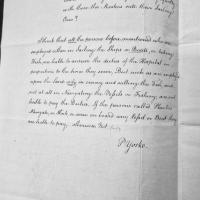 with these the Masters with their Fishing
Crew?
I think that all the persons before mentioned who are
employed either in Sailing the Ships or Boats, or taking
Fish, are liable to answer the duties of the Hospital in
proportion to the time they serve, But such as are employed
upon the land only in curing and salting the Fish, and
not at all in Navigating the Vessels or Fishing, are not
liable to pay the Duties. If the persons called Shoremen
Navigate, or Assist to row on board any Vessel or Boat they
are liable to pay, otherwise Not
P Yorke.